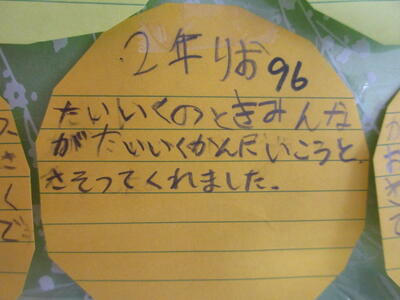 2年りお
96
たいいくのときみんな
がたいいくかんにいこうと
さそってくれました。
さ
く
で